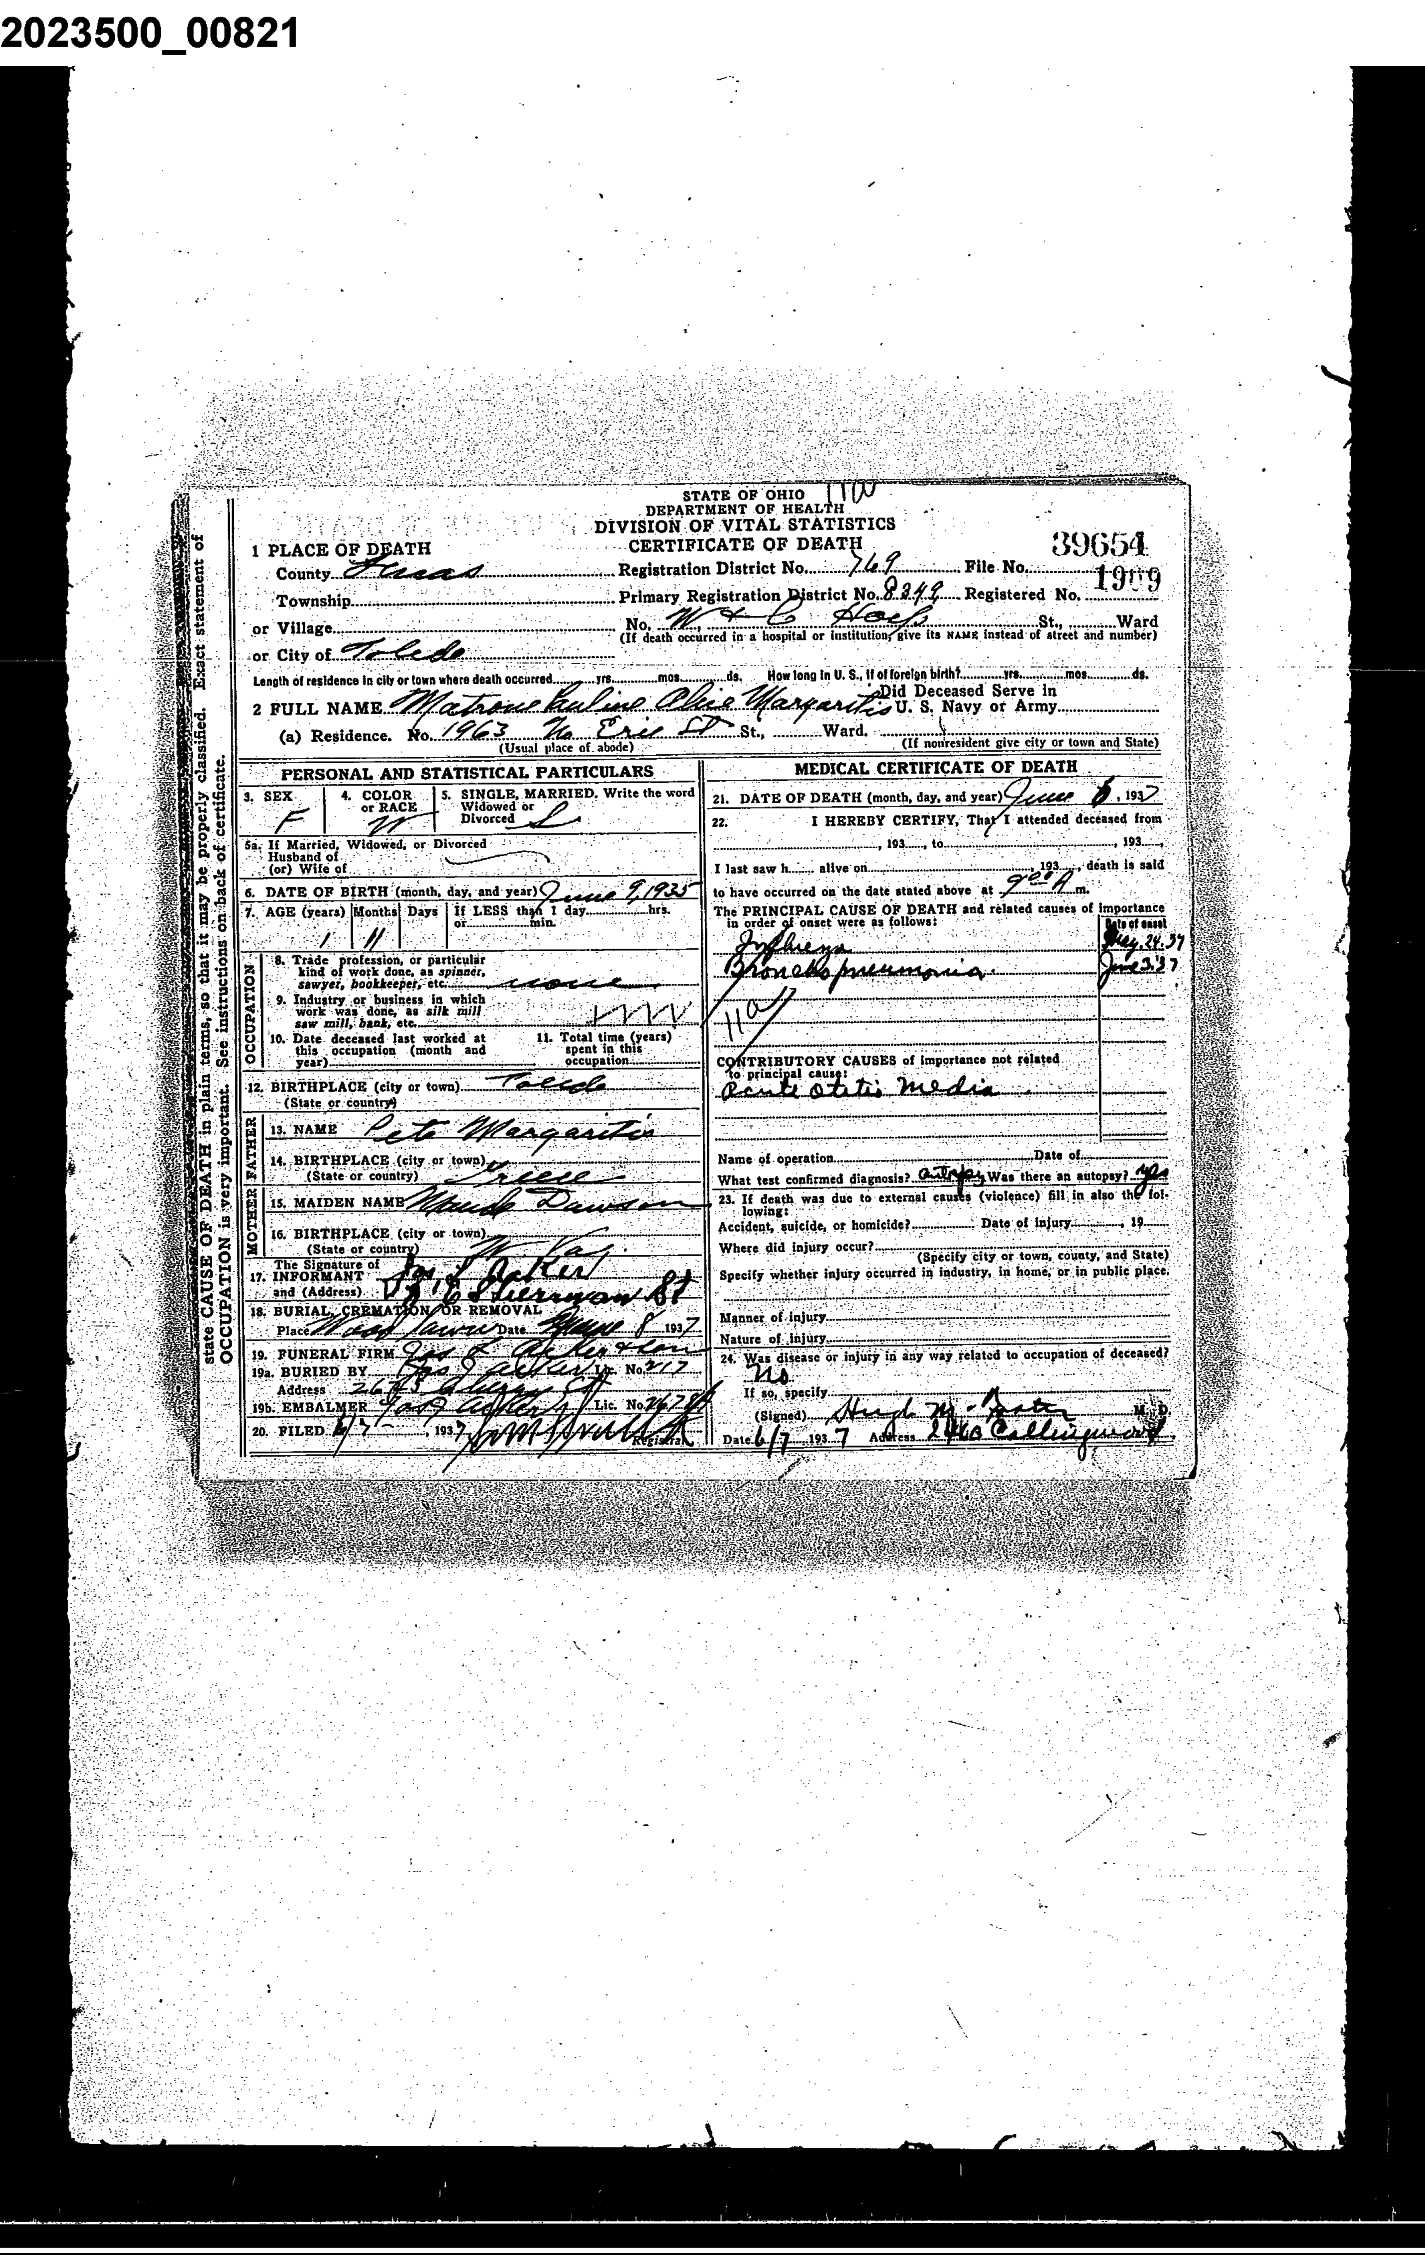 2023500_00821
STATE OF OHIO
DEPARTMENT OF HEALTH
DIVISION OF VITAL STATISTICS
CERTIFICATE OF DEATH
39654
1 PLACE OF DEATH
County Lucas Registration District No. 769 File No.
Township Primary Registration District No. 8249 Registered No. 1909
or Village No. W & C Hosp St., Ward
(If death occurred in a hospital or institution, give its NAME instead of street and number)
or City of Toledo
Length of residence in city or town where death occurred yrs. mos. ds. How long in U. S., if of foreign birth? yrs. mos. ds.
2 FULL NAME Pauline Margaritis Did Deceased Serve in U. S. Navy or Army
(a) Residence. No. 1963 No Erie St St., Ward.
(Usual place of abode) (If nonresident give city or town and State)
PERSONAL AND STATISTICAL PARTICULARS
3. SEX F
4. COLOR or RACE W
5. SINGLE, MARRIED, Write the word Widowed or Divorced S
5a. If Married, Widowed, or Divorced
Husband of
(or) Wife of
6. DATE OF BIRTH (month, day, and year) June 9, 1935
7. AGE (years) Months Days If LESS than 1 day hrs.
or min.
1 11
OCCUPATION
8. Trade profession, or particular
kind of work done, as spinner,
sawyer, bookkeeper, etc. none
9. Industry or business in which
work was done, as silk mill
saw mill, bank, etc.
10. Date deceased last worked at
this occupation (month and
year)
11. Total time (years)
spent in this
occupation
12. BIRTHPLACE (city or town) Toledo
(State or country)
FATHER
13. NAME Pete Margaritis
14. BIRTHPLACE (city or town)
(State or country) Greece
MOTHER
15. MAIDEN NAME Maude Dawson
16. BIRTHPLACE (city or town)
(State or country) W Va.
The Signature of
17. INFORMANT
and (Address) E Sherman St
18. BURIAL, CREMATION OR REMOVAL
Place Woodlawn Date June 8 1937
19. FUNERAL FIRM
19a. BURIED BY Lic. No. 217
Address Cherry St
19b. EMBALMER Lic. No.
20. FILED 6/7, 1937
Registrar
MEDICAL CERTIFICATE OF DEATH
21. DATE OF DEATH (month, day, and year) June 6, 1937
22. I HEREBY CERTIFY, That I attended deceased from
, 193 , to , 193 ,
I last saw h alive on 193 , death is said
to have occurred on the date stated above at 9 00 A m.
The PRINCIPAL CAUSE OF DEATH and related causes of importance
in order of onset were as follows: Date of onset
Influenza May. 24. 37
Bronchopneumonia June 3. 37
11a
CONTRIBUTORY CAUSES of importance not related
to principal cause:
Acute Otitis Media
Name of operation Date of
What test confirmed diagnosis? autopsy Was there an autopsy? yes
23. If death was due to external causes (violence) fill in also the fol-
lowing:
Accident, suicide, or homicide? Date of injury , 19
Where did injury occur?
(Specify city or town, county, and State)
Specify whether injury occurred in industry, in home, or in public place.
Manner of injury
Nature of injury
24. Was disease or injury in any way related to occupation of deceased?
No
If so, specify
(Signed) Hugh M. Foster M. D.
Date 6/7 1937 Address Collingwood
state CAUSE OF DEATH in plain terms, so that it may be properly classified. Exact statement of
OCCUPATION is very important. See instructions on back of certificate.